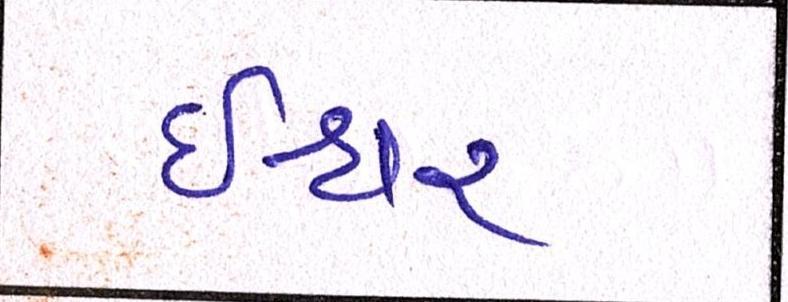 ઈશ્વર